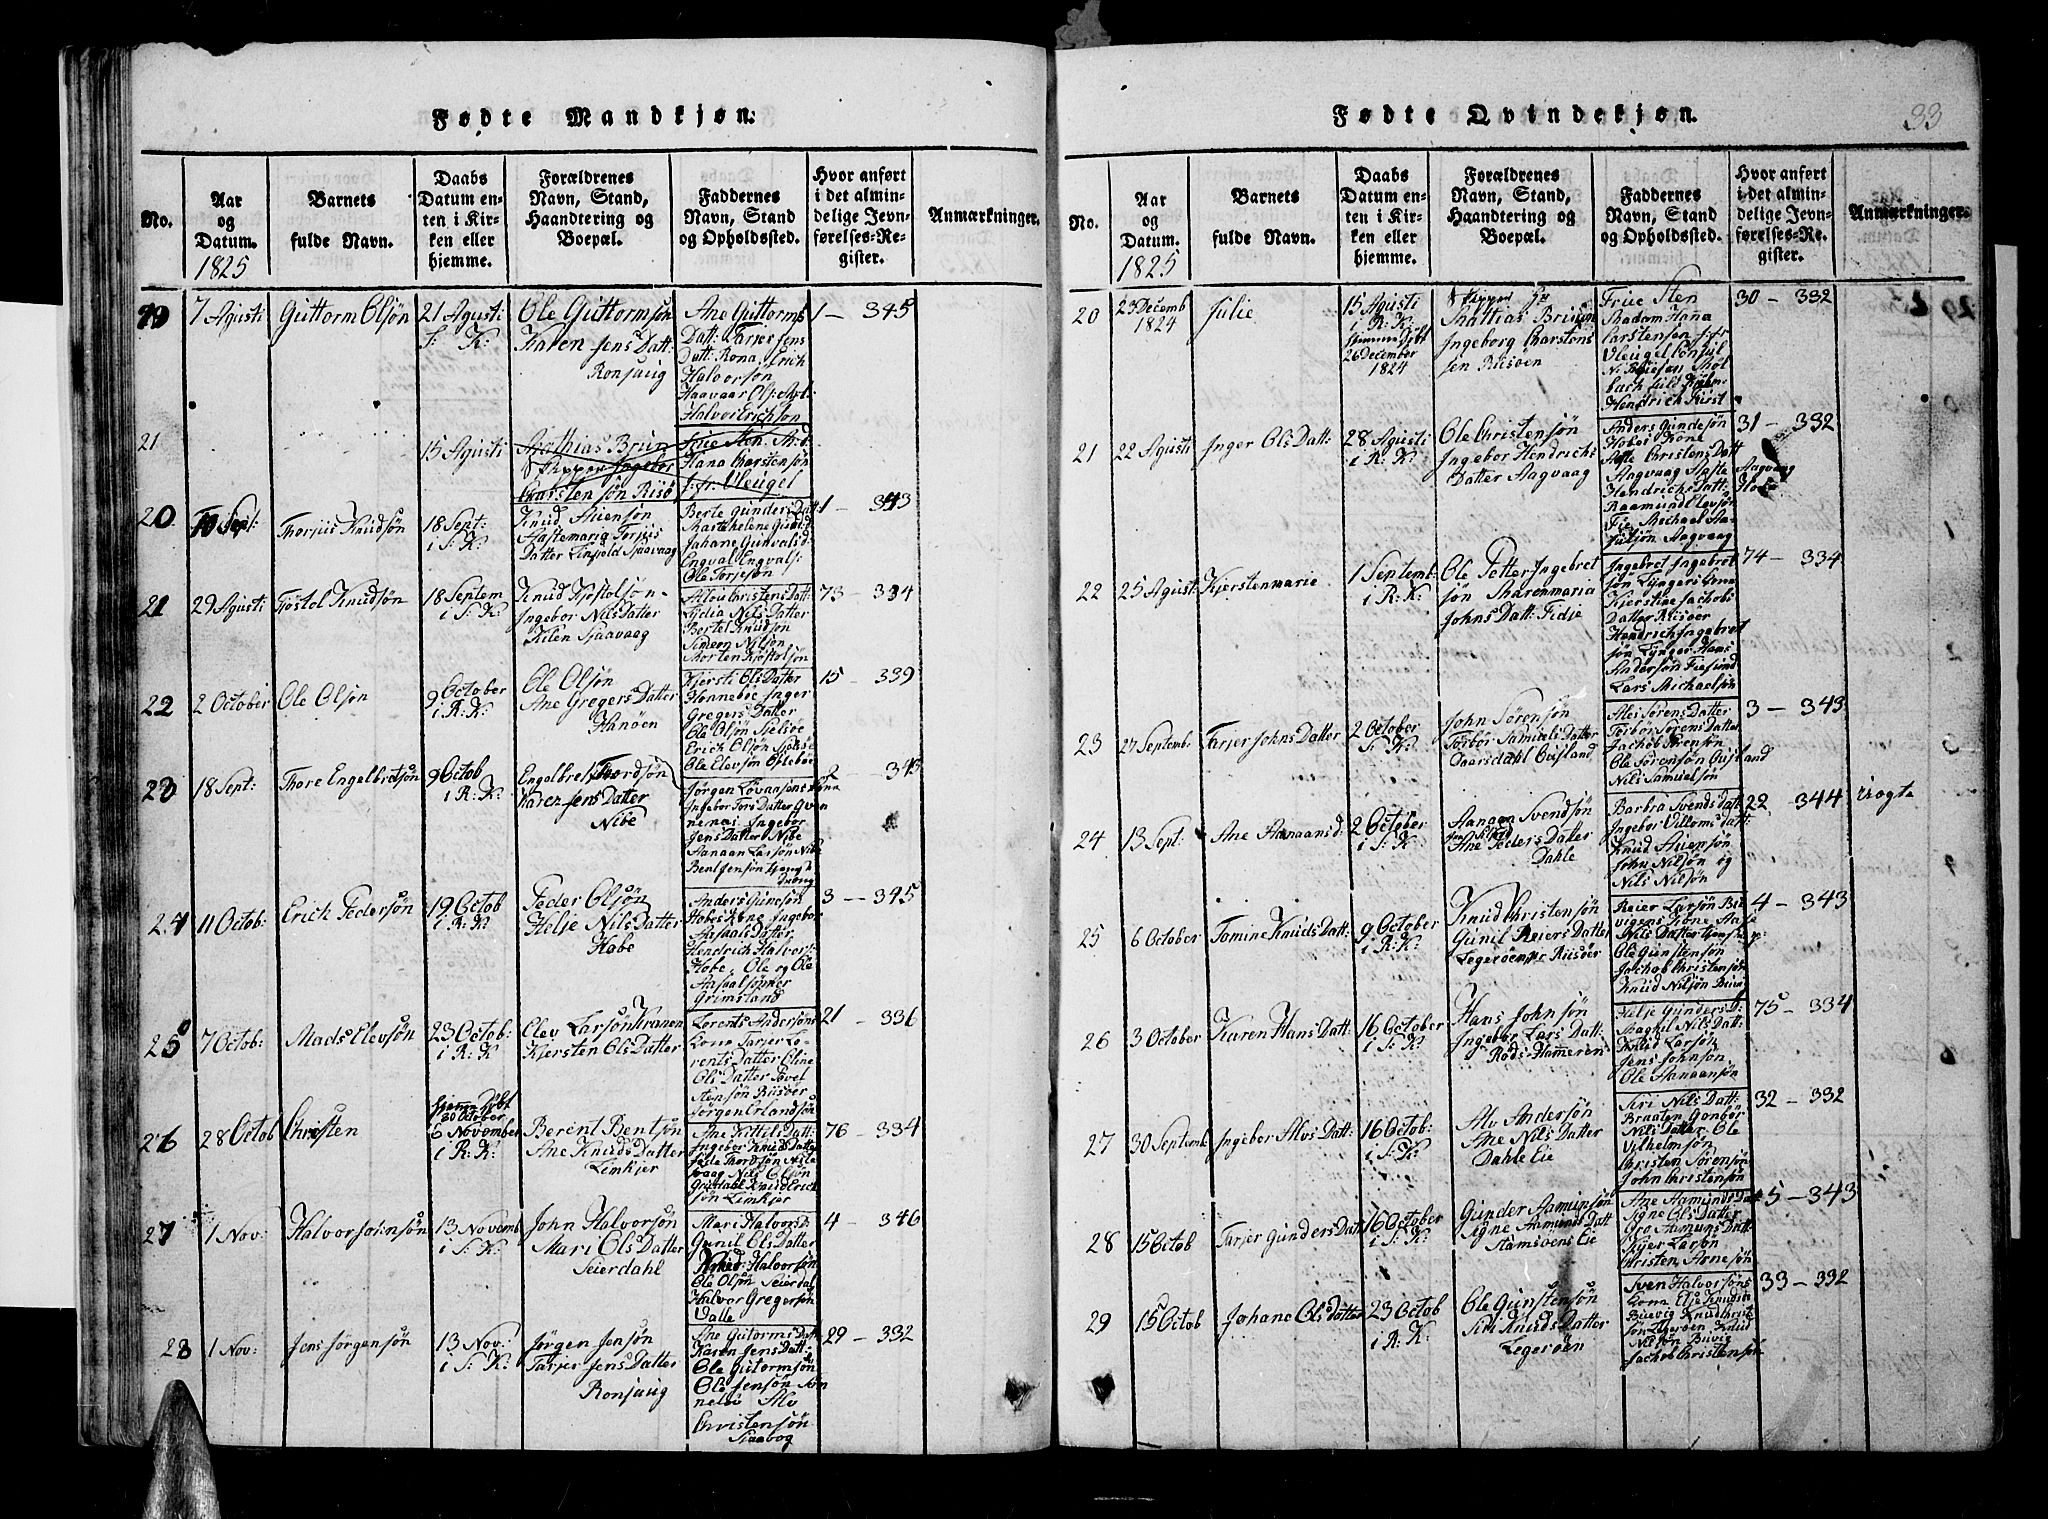 Fødte Mandkjøn.
No.
Aar
og
Datum.
1825
Barnets
fulde Navn.
Daabs
Datum en-
ten i Kir-
ken eller
hjemme.
Forældrenes
Navn, Stand,
Haandtering og
Boepæl.
Faddernes
Navn, Stand
og Opholdssted.
Hvor anført
i det almin-
delige Jevn-
førelses-Re-
gister.
Anmærkninger.
19
7 Agusti
Guttorm Olsøn
21 Agusti
S: K:
Ole Guttormsøn
Karen Jens Datt:
Ronjaug
Ane Guttorms
Datt: Tarjer Jens
Datt: Rona, Erich
Halvorsøn
Haavaar Ols:
Halvor Erichsøn
1 — 345
21
15 Agusti
Mathias Brun
Skipper Ingebor
Carsten søn Risø
Frue Sten
Hana Carstensøn
J: fr: Vleugel
20
10 Sept:
Thorjus Knudsøn
18 Sept:
i S: K:
Knud Auensøn
Aastemaria Torjus
Datter Sjaavaag
Berte Gunders Datt
Jahane Gunvalsd:
Engval Engvals:
Ole Torjesøn
1 — 343
21
29 Agusti
Tjøstol Knudsøn
18 Septem
i S: K:
Knud Tjøstolsøn
Ingebor Nils Datter
Kilen Sjaavaag
Christens Datt:
Nils Datter
Bertel Knudsøn
Simen Nilsøn
Morten Tjøstolsøn
73 — 334
22
2 October
Ole Olsøn
9 October
i R: K:
Ole Olsøn
Ane Gregers Datter
Hanøen
Kjersti Ols Datter
Hennebie Inger
Gregers Datter
Ole Olsøn Sielsøe
Erich Olsøn Sielsøe
Ole Elevsøn Oslebør
15 — 339
23
18 Sept:
Thore Engelbretsøn
9 Octob
i R: K:
Engelbret Tordsøn
Karen Jens Datter
Nibe
Jørgen Lovansens Kone
Ingebor Tors Datter
Ingebor
Jens Datter Nibe
Aanaan Larsøn Nibe
Bent Jensøn
2 — 343
24
11 Octob:
Erich Pedersøn
19 Octob
i R: K:
Peder Olsøn
Helje Nils Datter
Hobe
Anders Gundsøn
Hobes Kone Ingebor
Aasaals Datter
Hendrich Halvors:
Hobe, Ole og Ole
Aasaalsønner
Grimsland
3 — 345
25
7 Octob:
Mads Elevsøn
23 Octob:
i R: K:
Elev Larsøn Kranen
Kjersten Ols Datter
Lorents Andersøns
Kone Tarjer Lo-
rents Datter Oline
Ols Datter Povel
Stensøn Riisøer
Jørgen Erlandsøn
21 — 336
26
28 Octob
Christen
hjemmedøbt
30 October
6 November
i R: K:
Berent Bentsøn
Ane Knuds Datter
Limkjer
Ane Kittils Datt:
Ingebor Knuds Datter
Thordsøn
Nils Olsøn
Knud Erich
søn Limkjer
76 — 334
27
1 Nov:
Halvor Johnsøn
13 Novemb
i S: K:
John Halvorsøn
Mari Ols Datter
Seierdahl
Mari Halvorsd:
Gunil Ols Datter
Knud Halvorsøn
Ole Olsøn Seierdal
Halvor Gregersøn
Dalle
4 — 346
28
1 Nov:
Jens Jørgensøn
13 Nov:
i S: K:
Jørgen Jensøn
Tarjer Jens Datter
Ronjaug
Ane Gutorms Datt
Karen Jens Datt:
Ole Gutormsøn
Ole Jensøn
Alv
Christensøn
Siaabog
29 — 332
Fødte Qvindekjøn.
33
No.
Aar
og
Datum.
1825
Barnets
fulde Navn.
Daabs
Datum en-
ten i Kir-
ken eller
hjemme.
Forældrenes
Navn, Stand,
Haandtering og
Boepæl.
Faddernes
Navn, Stand
og Opholdssted.
Hvor anført
i det almin-
delige Jevn-
førelses-Re-
gister.
Anmærkninger.
20
23 Decemb
1824
Julie
15 Agusti
i R: K:
hjemmedøbt
26 December
1824
Skipper Hr
Mathias Bruun
Ingeborg Charstens
sen Riisøen
Frue Sten
Madam Hana
Carstensen Jfr
Vleugel Consul
Hendrich Kirst
30 — 332
21
22 Agusti
Inger Ols Datt:
28 Agusti
i R: K:
Ole Christensøn
Ingebor Hendrichs
Datter Aagvaag
Anders Gundesøn
Hobes Kone
Aaste Christens Datt
Aagvaag Aaste Aagvaag
Hendrichs Datt: Hobe
Raamund Elevsøn
Fie Michael
Aagvaag
31 — 332
22
25 Agust:
Kjerstenmarie
1 Septemb:
i R: K:
Ole Petter Ingebret
søn Marenmaria
Johns Datt: Fidje
Ingebret Ingebret
søn Lynger
Kjerstine Jachobs
Datter Riisøer
Hendrich Ingebret
søn Lynger Hans
Andersøn
Lars Michaelsøn
74 — 334
23
27 Septemb:
Tarjer Johns Datter
2 October
S: K:
John Sørensøn
Torbor Samuels Datter
Gaarsdahl Gusland
Alei Sørens Datter
Torbor Sørens Datter
Jachob Sørensøn
Ole Sørensøn Gusland
Nils Samuelsøn
3 — 343
24
13 Sept:
Ane Aanaansd:
2 October
i S: K:
Aanaan Svendsøn
Ane Peders Datter
Dahle
Barbra Svends datt
Ingebor Villoms datt:
Knud Auensøn
John Nilsøn og
Nils Nilsøn
22 — 344
25
6 October
Tomine Knuds Datt:
9 October
i R: K:
Knud Christensøn
Gunil Reiers Datter
Legeroen Riisøer
Reier Larsøn Bu-
vigens Kone Aase
Nils Datter
Ole Gunstensøn
Jachob Christensøn
Knud Nilsøn Buvig
4 — 343
26
3 October
Karen Hans Datt:
16 October
i S: K:
Hans Johnsøn
Ingebor Lars Datt:
Røds-Hammeren
Helje Gunders D:
Maghil Nils Datt:
Knud Larsøn
Jens Johnsøn
Ole Aanaansøn
75 — 334
27
30 Septemb:
Ingebor Alvs Datt:
16 Octob:
i S: K:
Alv Andersøn
Ane Nils Datter
Dahle Eie
Siri Nils Datt:
Braaten Gonbor
Nils Datter Ole
Vilhelmsøn
Christen Sørensøn
John Christensøn
32 — 332
28
15 Octob
Tarjer Gunders Datt
16 October
i S: K:
Gunder Aamunsøn
Signe Aamunds Datt
Stamsøens Eie
Ane Aamunds Datt
Signe Ols Datter
Gro Aamuns Datt:
Reier Larsøn
Christen Arnesøn
5 — 343
29
15 Octob
Johane Ols Datter
23 Octob
i R: K:
Ole Gunstensøn
Siri Knuds Datter
Legeroen
Sven Halvorsøns
Kone Elje Knudsd:
Buevig Knud Christ
søn Legeroen Knud
Nilsøn Buvig
Jachob Christensøn
33 — 332